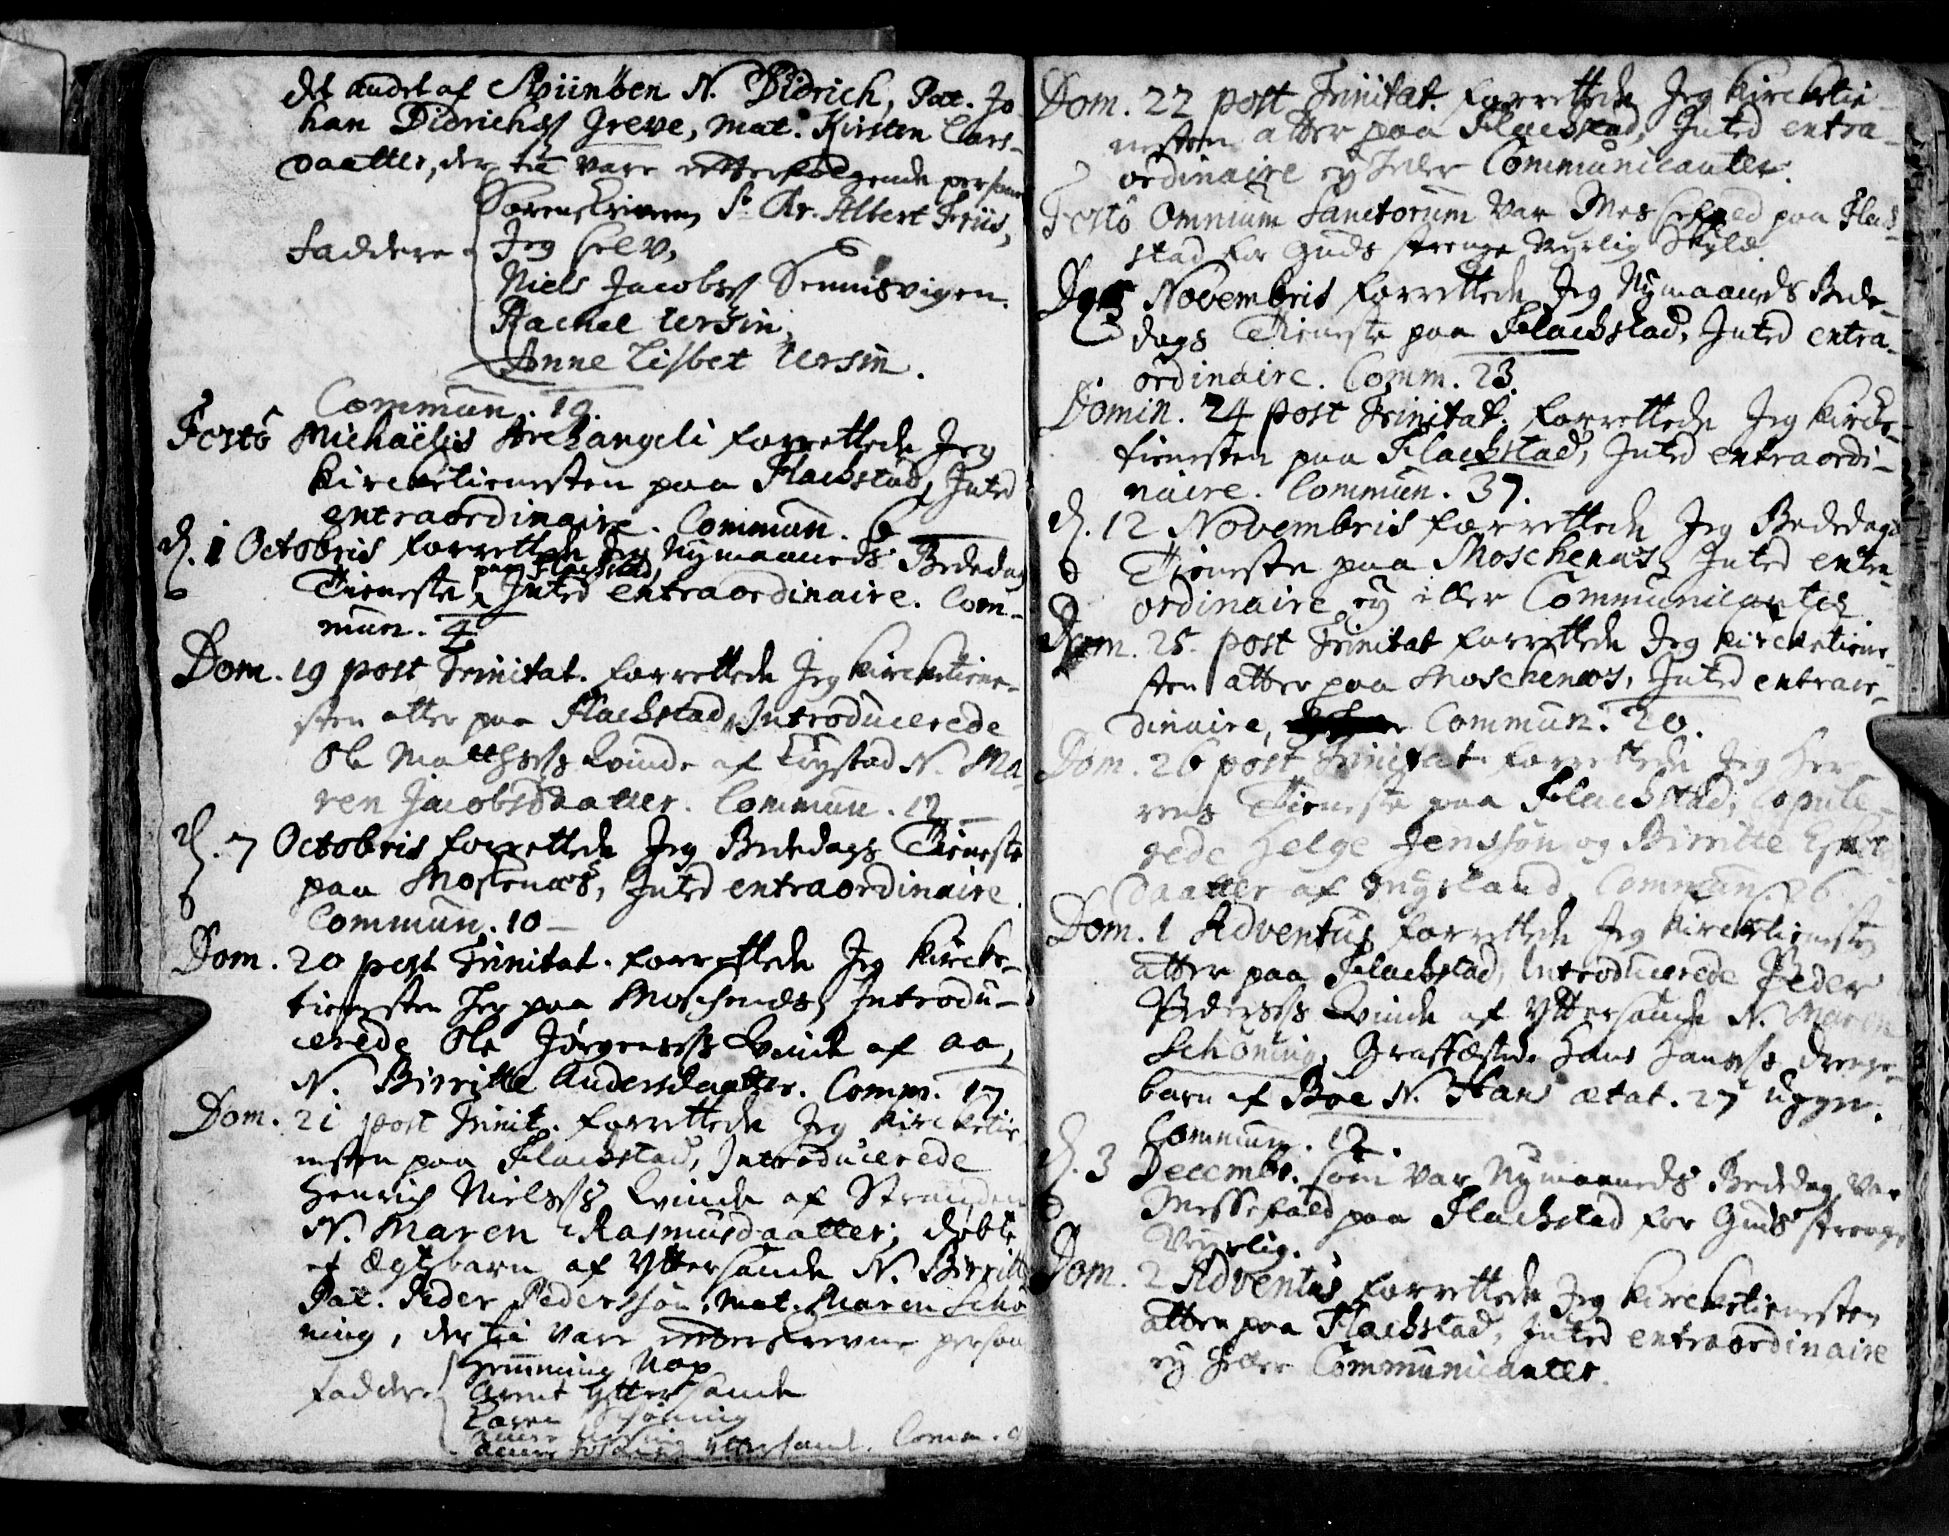 det andet af Sviinöen N. Didrich, Pat. Jo-
han Didrichss Greve, Mat. Kirsten Lars-
daatter, der til vare efterfølgende persone
Sorenskriveren, Sr. Chr. Albert Friis,
faddere Jeg selv,
Niels Jacobss Sennisvigen.
Rachel Ursin,
Anne Lisbet Ursin.
Commun. 19.
Festo Michaëlis Archangeli forrettede Jeg
kircketienesten paa Flachstad, Inted
entraordinaire. Commun. 6
d. 1 Octobris forrettede Jeg Nymaaneds Bededag
paa Flachstad,
Tieneste, Inted entraordinaire. Com-
mun. 4
Dom. 19 post Trinitat. forrettede Jeg kirketiene-
sten atter paa Flachstad, Introducerede
Ole Matthss Kvinde af Krystad N. Ma-
ren Jacobsdaatter. Commun. 12
d. 7 Octobris forrettede Jeg Bededags Tieneste
paa Moskenæs, Inted entraordinaire.
Commun. 10
Dom. 20 post Trinitat. forrettede Jeg kircke-
tienesten her paa Moschenæs, Introdu-
cerede Ole Jørgenss Kvinde af Aa,
N. Birritte Andersdaatter. Comm. 17
Dom. 21 post Trinit. forrettede Jeg kircketie-
nesten paa Flachstad, Introducerede
Henrich Nielss Kvinde af Stranden
N. Maren Rasmusdaatter; døbte
et Ægtebarn af Yttersande N. Birritte
Pat. Peder Pederssøn, Mat. Maren Schö-
ning, der til vare underskrevne persoo
Hemming Nap
faddere Arent Yttersande
Karen Schöning
Yttersand. Comm. 9
Dom. 22 post Trinitat. forrettede Jeg kircketie-
nesten atter paa Flachstad, Inted entra-
ordinaire ey heller Communicanter.
Festo Omnium Sanctorum var Messefald paa Flach-
stad for Guds strenge Veyrlig Skyld.
D. 5 Novembris forrettede Jeg Nymaaneds Bede-
dags Tieneste paa Flachstad, Inted entra-
ordinaire. Comm. 23.
Domin. 24 post Trinitat. forrettede Jeg kircke-
tienesten paa Flachstad, Inted entraordi-
naire. Commun. 37.
d. 12 Novembris forrettede Jeg Bededags
Tieneste paa Moschenæs, Inted entra-
ordinaire ey eller Communicanter.
Dom. 25. post Trinitat forrettede Jeg kircketiene-
sten atter paa Moschenæs, Inted entraor-
dinaire, Commun. 20.
Dom. 26 post Trinitat. forrettede Jeg Her-
rens Tieneste paa Flachstad, Copule-
rede Helge Jenssøn og Birritte
daatter af Commun. 26.
Dom. 1 Adventus forrettede Jeg kircketienesten
atter paa Flachstad, Introducerede Peder
Pederss Kvinde af Yttersande N. Maren
Schöning, Graffæstede Hans Hanss drenge-
barn af Böe N. Hans ætat. 27 uger.
Commun. 12.
d. 3 Decembr. som var Nymaaneds Bededag var
Messefald paa Flachstad for Guds strenge
Veyrlig.
Dom. 2 Adventus forrettede Jeg kircketienesten
atter paa Flachstad, Inted entraordinaire
ey heller Communicanter.